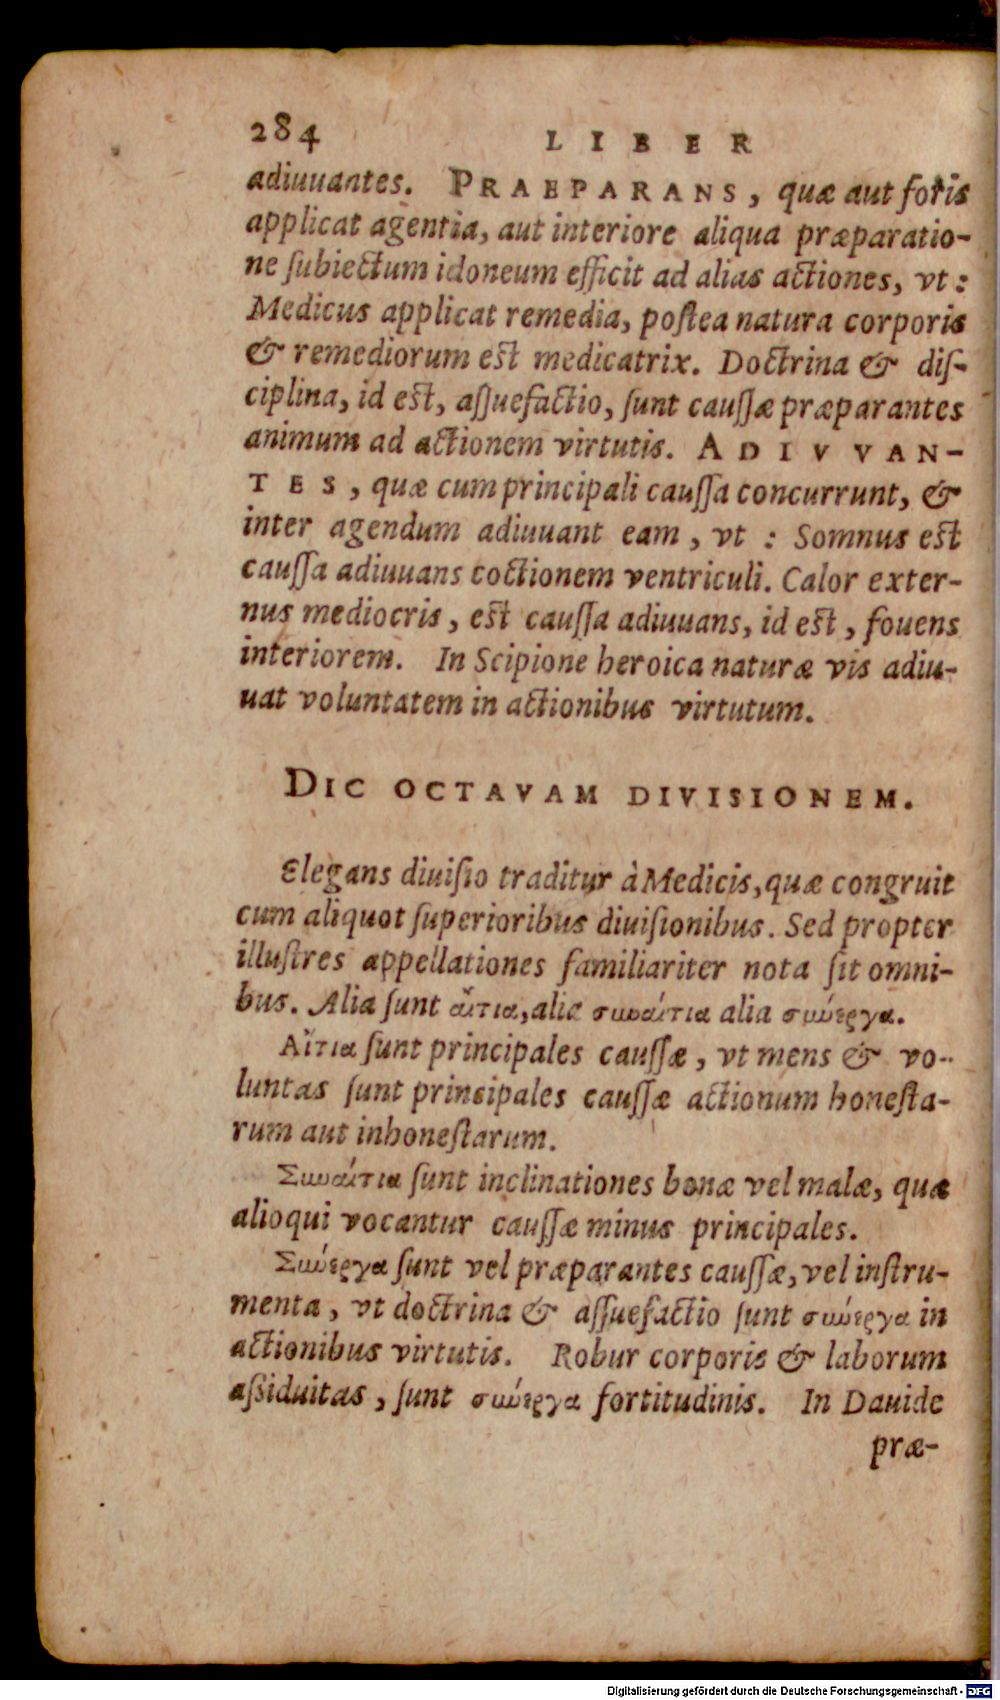 284 LIBER
adiuuantes. PRAEPARANS, quæ aut foris
applicat agentia, aut interiore aliqua præparatio-
ne ſubiectum idoneum efficit ad alias actiones, vt:
Medicus applicat remedia, poſtea natura corporis
& remediorum eſt medicatrix. Doctrina & diſ-
ciplina, id eſt, aſſuefactio, ſunt cauſſæ præparantes
animum ad actionem virtutis. ADIVVAN-
TES, quæ cum principali cauſſa concurrunt, &
inter agendum adiuuant eam, vt: Somnus eſt
cauſſa adiuuans coctionem ventriculi. Calor exter-
nus mediocris, eſt cauſſa adiuuans, id eſt, fouens
interiorem. In Scipione heroica naturæ vis adiu-
uat voluntatem in actionibus virtutum.
DIC OCTAVAM DIVISIONEM.
Elegans diuiſio traditur à Medicis, quæ congruit
cum aliquot ſuperioribus diuiſionibus. Sed propter
illuſtres appellationes familiariter nota ſit omni-
bus. Alia ſunt αἴτια, alia συναίτια alia σύνεργα.
Αἴτια ſunt principales cauſſæ, vt mens & vo-
luntas ſunt principales cauſſæ actionum honeſta-
rum aut inhoneſtarum.
Συναίτια ſunt inclinationes bonæ vel malæ, quæ
alioqui vocantur cauſſæ minus principales.
Σύνεργα ſunt vel præparantes cauſſæ, vel inſtru-
menta, vt doctrina & aſſuefactio ſunt σύνεργα in
actionibus virtutis. Robur corporis & laborum
aſsiduitas, ſunt σύνεργα fortitudinis. In Dauide
præ-
Digitalisierung gefördert durch die Deutsche Forschungsgemeinschaft - DFG